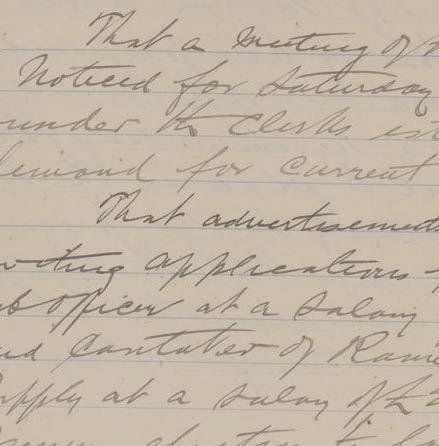 That a meeting of
Noticed for Saturday
under the Clerks
demand for current
That advertisements
applications
officer at a salary
and Caretaker of
Supply at a salary of £